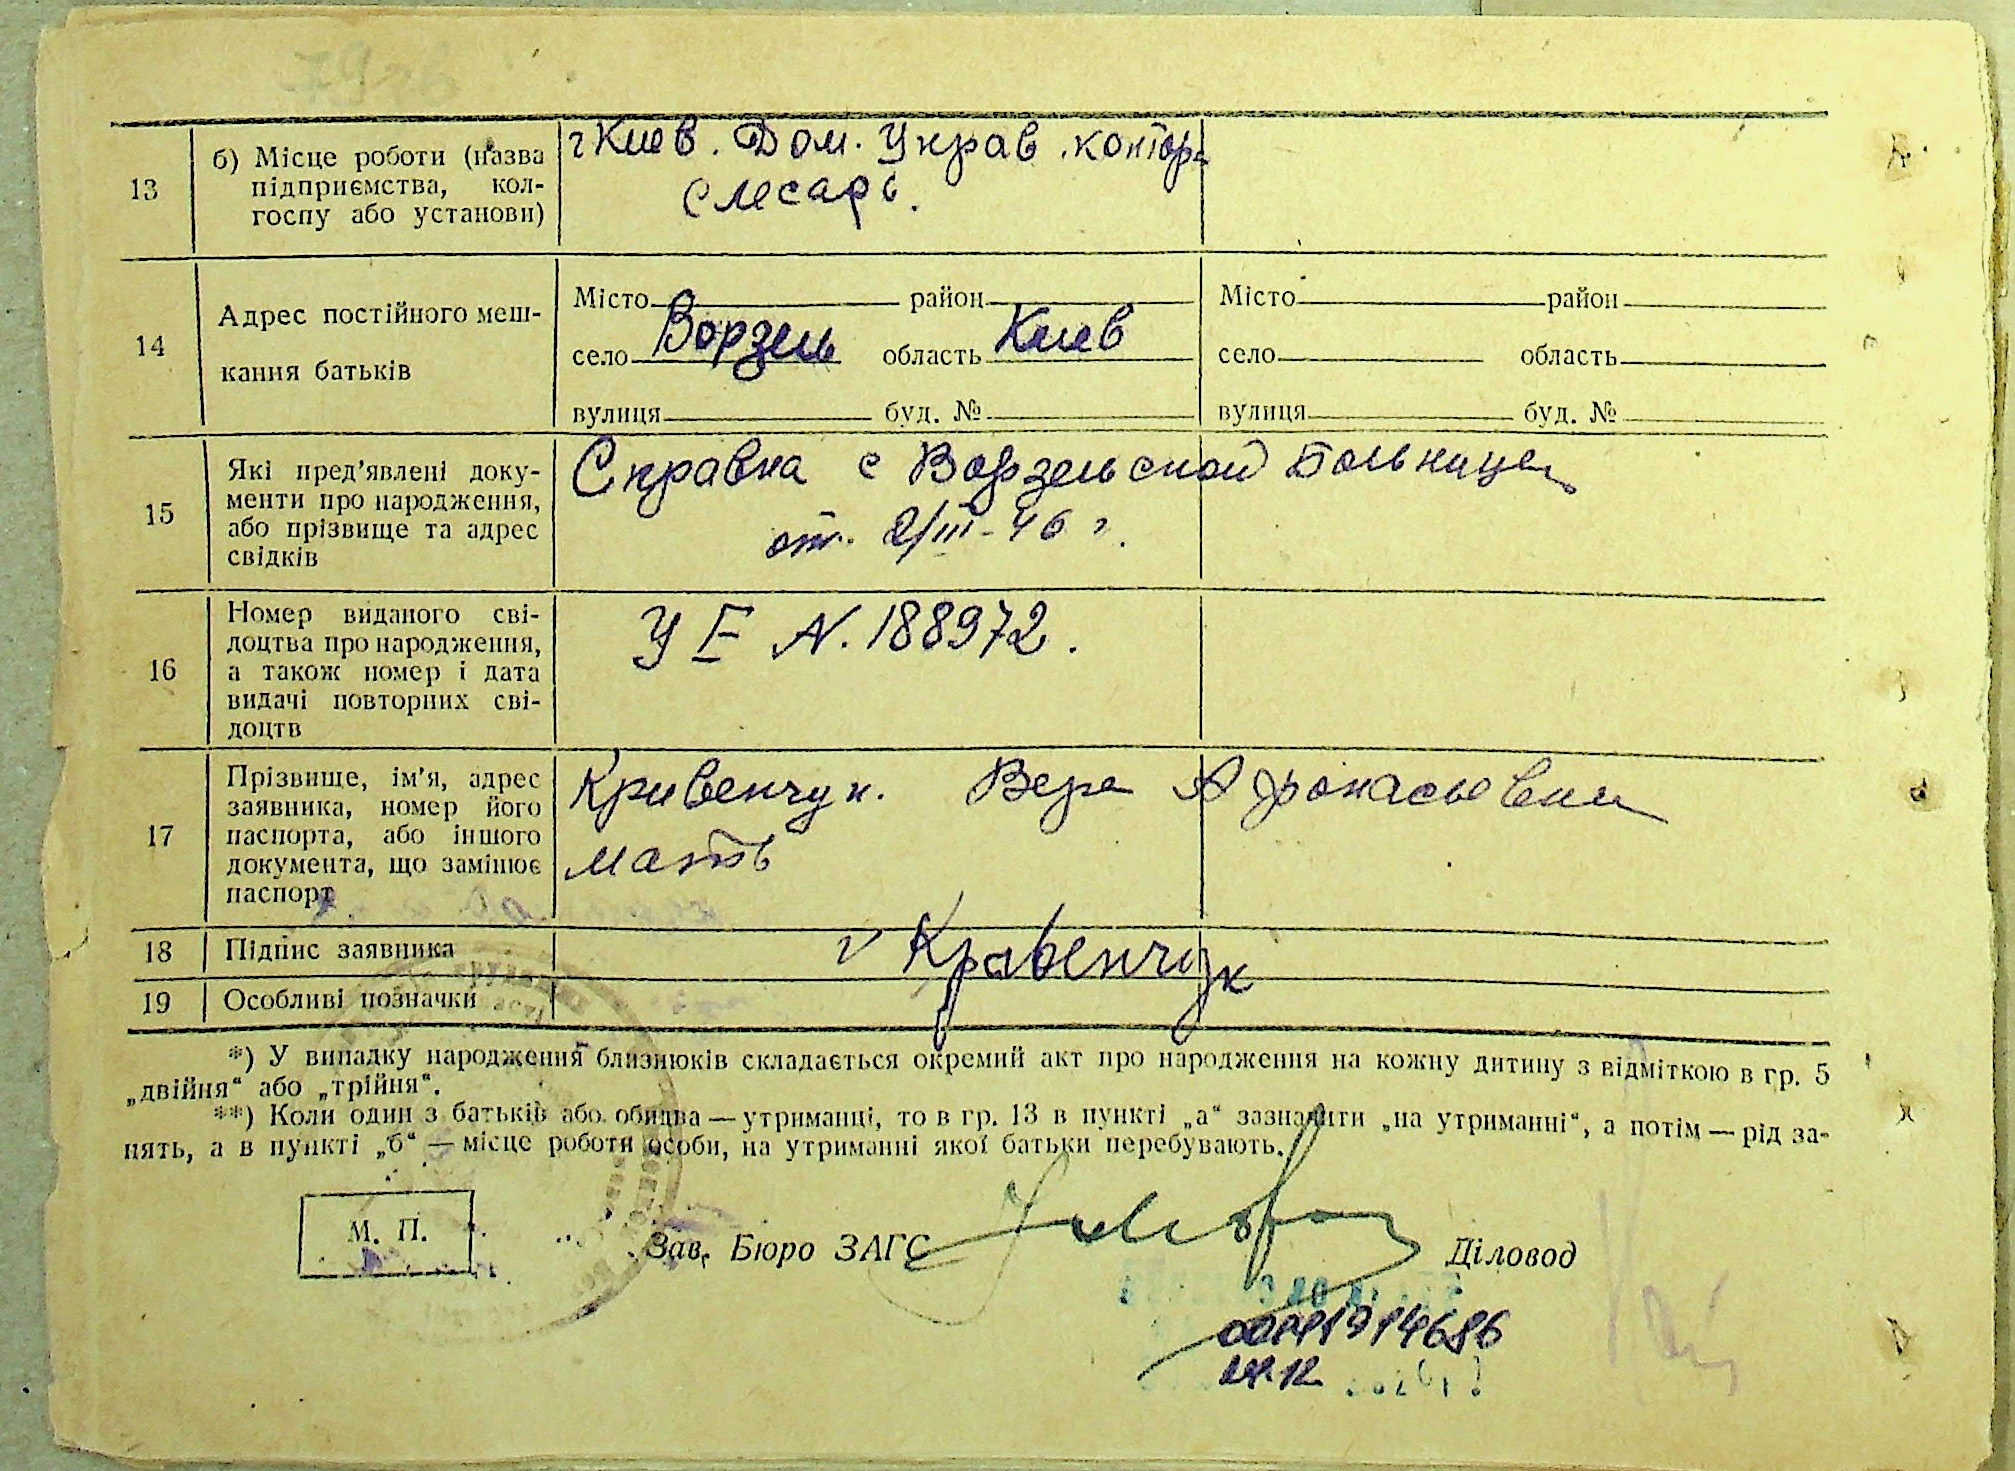 13
б) Місце роботи (назва
підприємства, кол-
госпу або установи)
г Киев. Дом. Управ. контора
слесарь.
14
Адрес постійного меш-
кання батьків
Місто район
село Ворзель область Киев
вулиця буд. №
Місто район
село область
вулиця буд. №
15
Які пред'явлені доку-
менти про народження,
або прізвище та адрес
свідків
Справка с Ворзельской Больницы
от. 2/III-46 г.
16
Номер виданого сві-
доцтва про народження,
а також номер і дата
видачі повторних сві-
доцтв
УЕ N. 188972.
17
Прізвище, ім'я, адрес
заявника, номер його
паспорта, або іншого
документа, що замінює
паспорт
Кривенчук. Вера Афонасьевна
мать
18
Підпис заявника
Кравенчук
19
Особливі позначки
*) У випадку народження близнюків складається окремий акт про народження на кожну дитину з відміткою в гр. 5
„двійня“ або „трійня“.
**) Коли один з батьків або обидва — утриманці, то в гр. 13 в пункті „а“ зазначити „на утриманні“, а потім — рід за-
нять, а в пункті „б“ — місце роботи особи, на утриманні якої батьки перебувають.
М. П.
Зав. Бюро ЗАГС
Діловод